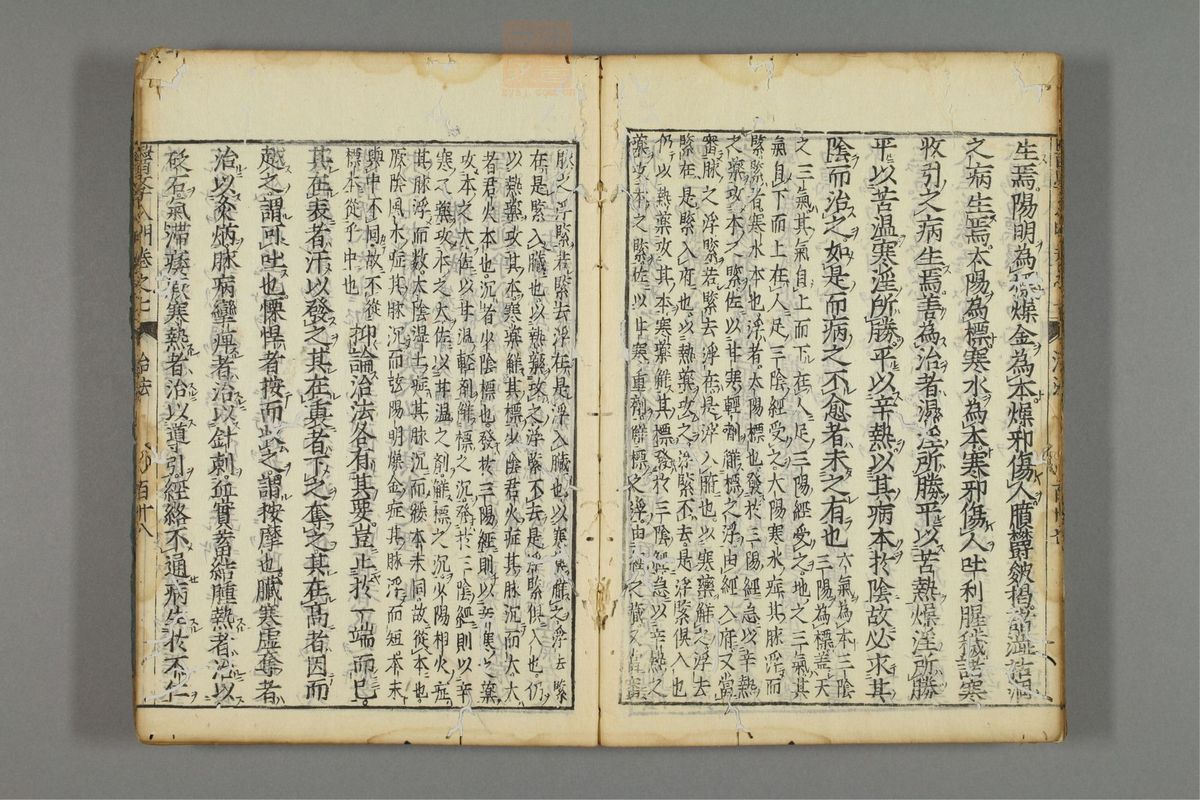 生焉陽明為標燥金為本燥邪傷人膹鬱皴揭
之病生焉太陽為標寒水為本寒邪傷人吐利腥穢
收引之病生焉善為治者濕淫所勝平以苦熱燥淫所勝
平以苦温寒淫所勝平以辛熱以其病本於陰故必求其
陰而治之如是而病之不愈者未之有也
六氣為本三陰
三陽為標蓋天
之三氣其氣自上而下在人足三陽經受之地之三氣其
氣自下而上在人足三陰經受之太陽寒水症其脉浮而
緊緊者寒水本也浮者太陽標也發於三陽經急以辛熱
之藥攻本之緊佐以甘寒輕劑觧標之浮由經入府又當
審脉之浮緊若緊去浮在是浮入腑也以寒藥觧之浮去
緊在是緊入府也以熱藥攻之浮緊不去是浮緊俱入也
仍以熱藥攻其本寒藥觧其標發於三陰經急以辛熱之
藥攻本之緊佐以甘寒重劑觧標之浮由
脉之浮緊若緊去浮在是浮入臟也以寒藥觧之浮去緊
在是緊入臟也以熱藥攻之浮緊不去是浮緊俱入也仍
以熱藥攻其本寒藥觧其標少陰君火症其脉沉而大大
者君火本也沉者少陰標也發於三陽經則以辛寒之藥
攻本之大佐以甘温輕劑觧標之沉發於三陰經則以辛
寒之藥攻本之大佐以甘温之劑觧標之沉少陽相火症
其脉浮而數太陰湿土症其脉沉而緩本末同故從本也
厥陰風木症其脉沉而弦陽明燥金症其脉浮而短本末
與中不同故不從
標本從乎中也
抑論治法各有其要豈止於一端而已
其在表者汗以發之其在裏者下之奪之其在高者因而
越之謂可吐也慄悍者按而收之謂按摩也臟寒虚奪者
治以灸焫脉病攣痺者治以針刺血實蓄結腫熱者治以
砭石氣滯痿厥寒熱者治以導引經絡不通病生於不仁
治法
百廿八